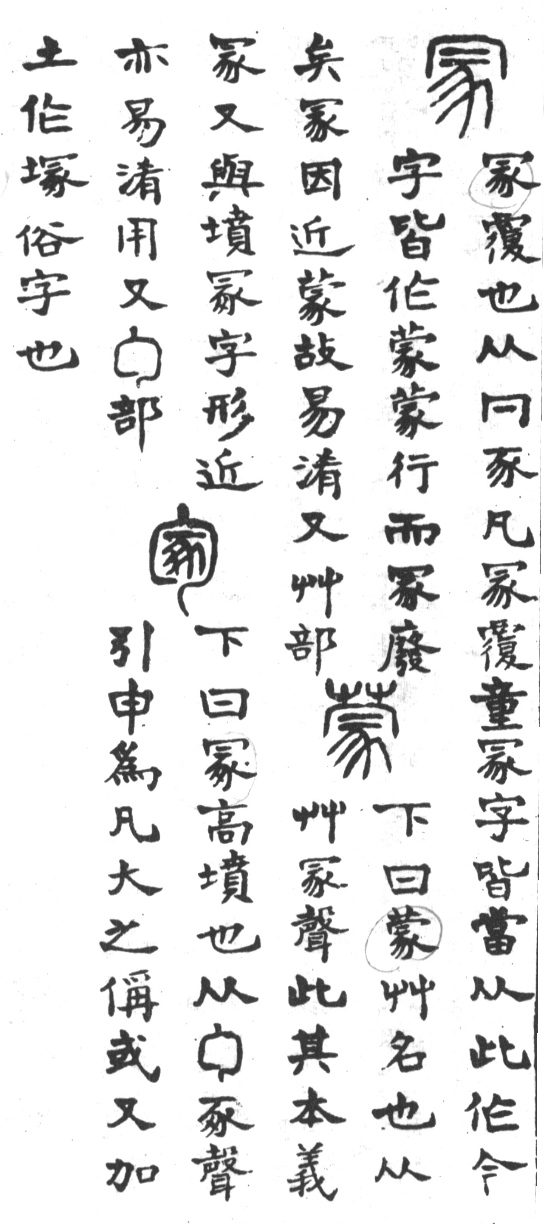 冡
冡覆也从𠔼豕凡冡覆童冡字皆當从此作今
字皆作蒙蒙行而冡廢
矣冡因近蒙故易淆又艸部
蒙
下曰蒙艸名也从
艸冡聲此其本義
冡又與墳冢字形近
亦易淆用又勹部
冢
下曰冢高墳也从勹豖聲
引申爲凡大之偁或又加
土作塚俗字也